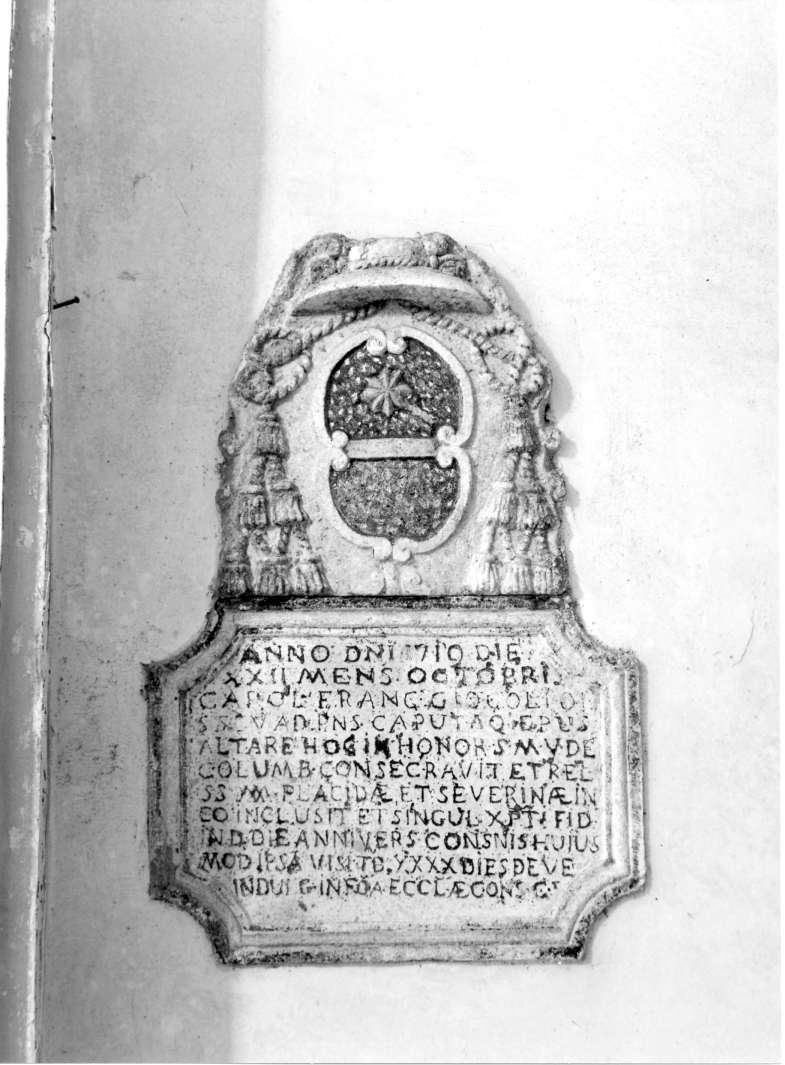 ANNO DNI 1719 DIE
XXII MENS OCTOBRIS
CAROL' FRANC GIOCOLI OI
S S VAD PNS CAPUTAQ EPUS
ALTARE HOC IN HONOR S M V DE
COLUMB CONSECRAVIT ET REL
SS MM PLACIDÆ ET SEVERINÆ IN
EO INCLUSIT ET SINGUL XPTI FID
IN D DIE ANNIVERS CONSNIS HUIUS
MODI IPSA VISITD XXXX DIES DE VE
INDULG IN FOA ECCLÆ CONS C